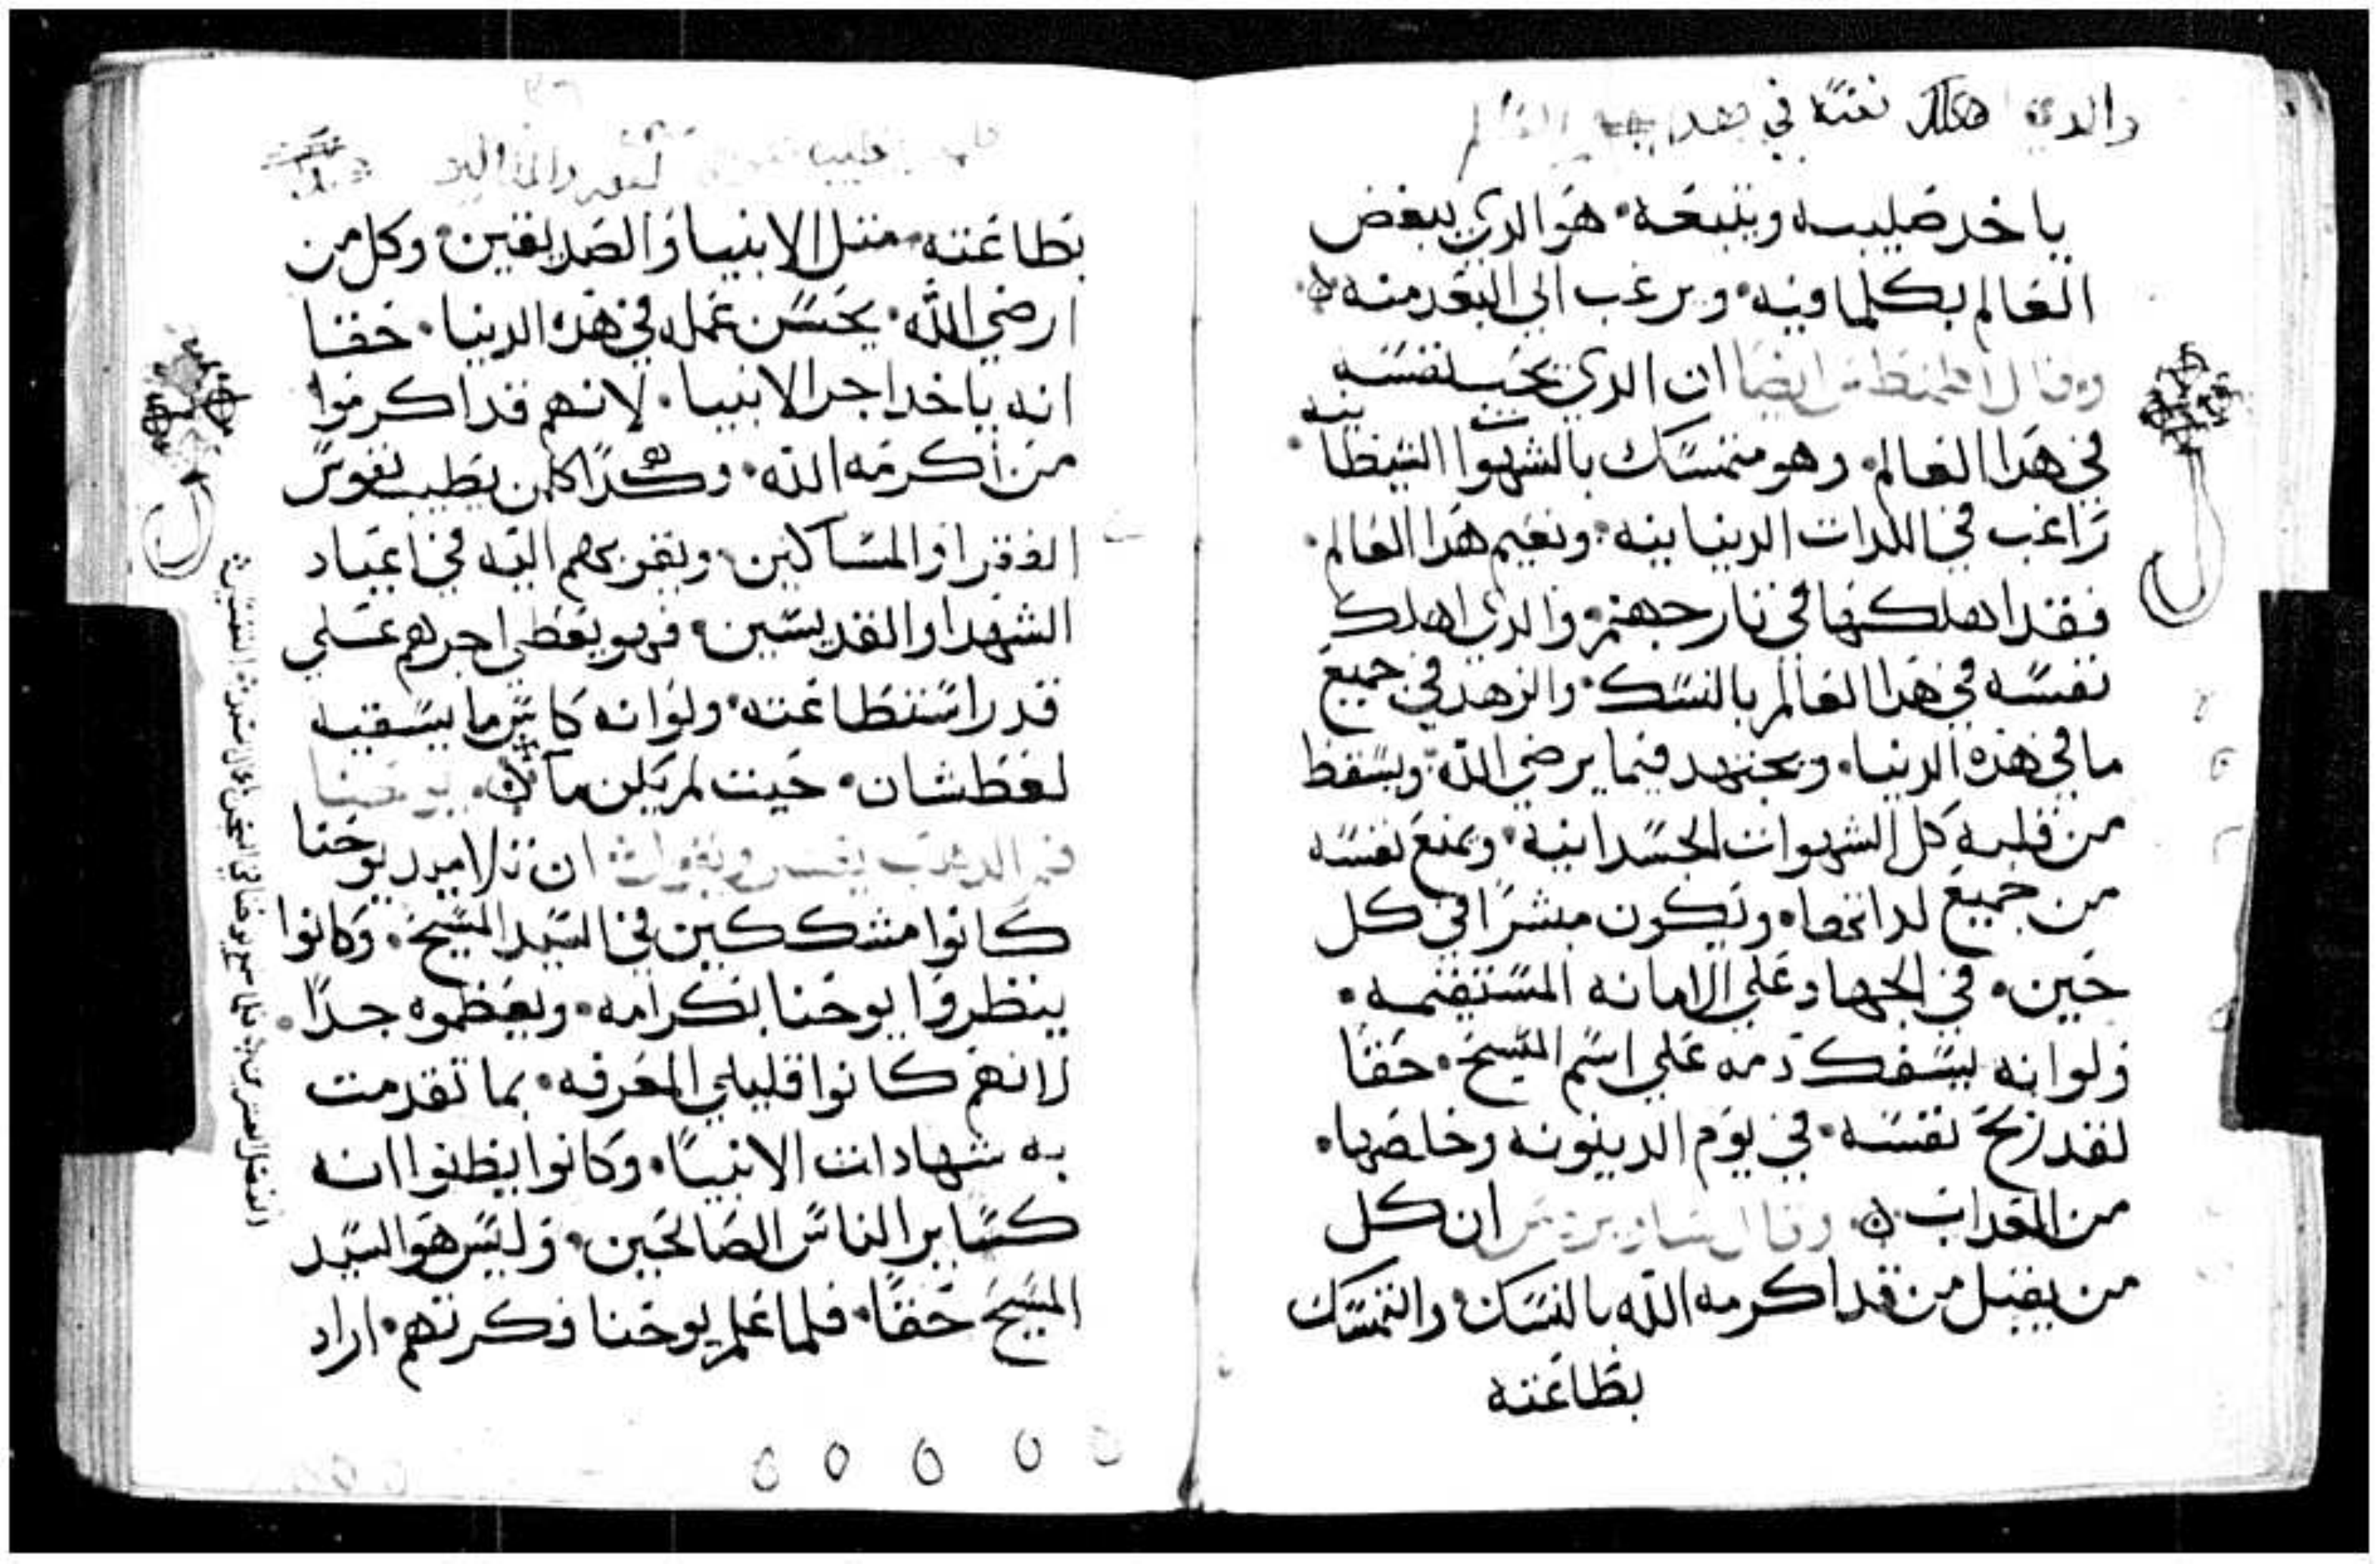 والدي اهلك نفسه في هدا العالم
ياخد صليبه ويتبعه · هو الدي يبغض
العالم بكلما فيه · ويرغب الي البعد منه ·
وقال ايضا ان الدي يحب نفسه
في هدا العالم · وهو متمسك بالشهوات الشيطانيه ·
راغب في اللدات الدنيانيه · ونعيم هدا العالم ·
فقد اهلكها في نار جهنم · والدي اهلك
نفسه في هدا العالم بالنسك · والزهد في جميع
ما في هذه الدنيا · ويجتهد فيما يرضي الله · ويسقط
من قلبه كل الشهوات الجسدانيه · ويمنع نفسه
من جميع لداتها · ويكون مبشرا في كل
حين · في الجهاد علي الامانه المستقيمه ·
ولو انه يسفك دمه علي اسم المسيح · حقا
لقد ربح نفسه · في يوم الدينونه وخلصها ·
من العداب · وقال ساويرس ان كل
من يقبل من قد اكرمه الله بالنسك · والتمسك
بطاعته
بطاعته · متل الانبيا والصديقين · وكل من
ارضي الله · بحسن عمله في هذه الدنيا · حقا
انه ياخد اجر الانبيا · لانهم قد اكرموا
من اكرمه الله · وهكدا كلمن يطيب نفوس
الفقرا والمساكين · ويقربهم اليه في اعياد
الشهدا والقديسين · فهو يعطي اجرهم علي
قدر استطاعته · ولو انه كاس ما يسقيه
لعطشان · حيت لم يكن ما · يوحنا
فم الدهب يفسر ويقول ان تلاميد يوحنا
كانوا مشككين في السيد المسيح · وكانوا
ينظروا يوحنا بكرامه · ويعظموه جدا ·
لانهم كانوا قليلي المعرفه · بما تقدمت
به شهادات الانبيا · وكانوا يظنوا انه
كساير الناس الصالحين · وليس هو السيد
المسيح حقا · فلما علم يوحنا فكرتهم · اراد